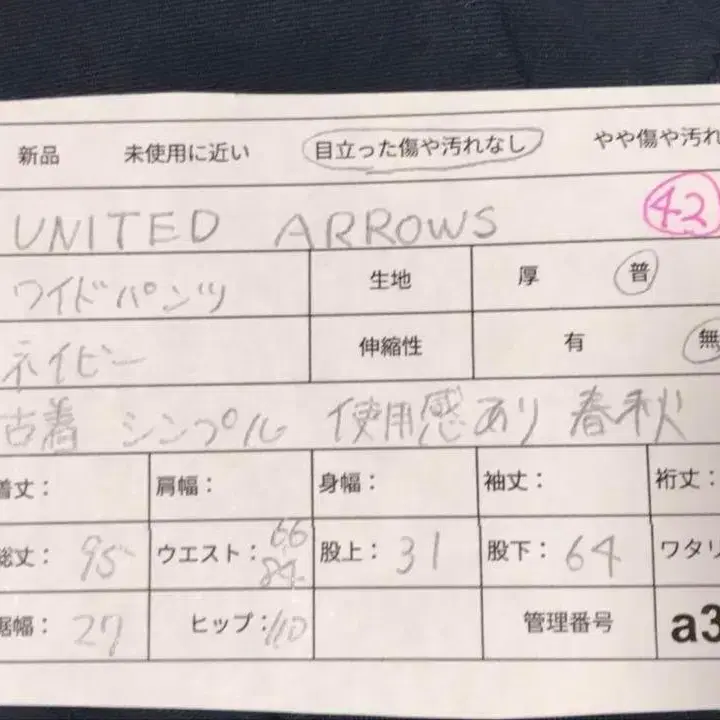 新品 未使用に近い 目立った傷や汚れなし やや傷や汚れ
UNITED ARROWS 42
ワイドパンツ 生地 厚 普
ネイビー 伸縮性 有 無
古着 シンプル 使用感あり 春秋
着丈： 肩幅： 身幅： 袖丈： 裄丈：
総丈： 95 ウエスト： 66 84 股上： 31 股下： 64 ワタリ
裾幅： 27 ヒップ： 110 管理番号 a3